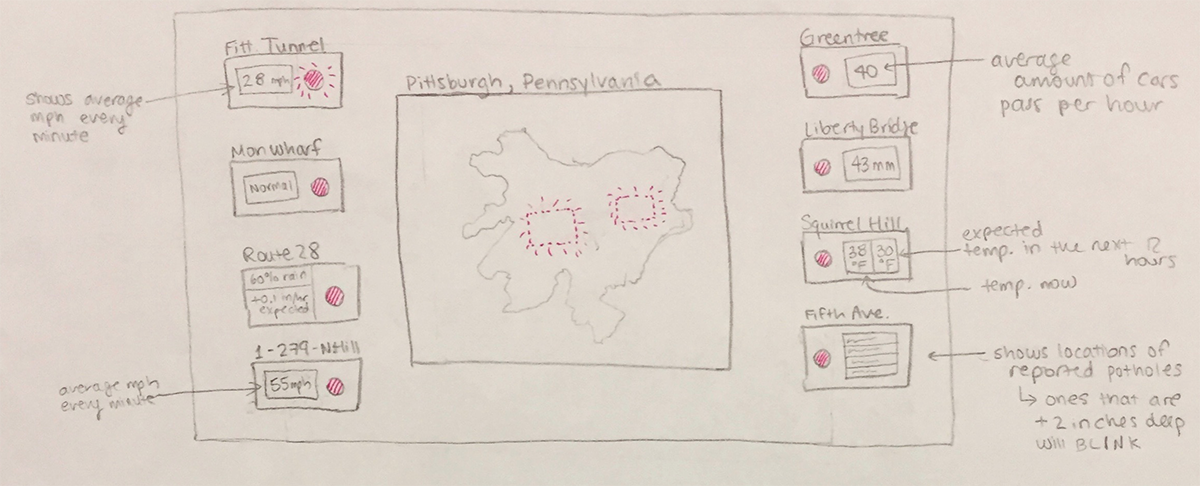 Fitt. Tunnel
28 mph
shows average
mph every
minute
Monwharf
Normal
Route 28
60% rain
+0.1 in/hr
expected
1-279-NHill
55mph
average mph
every minute
Pittsburgh, Pennsylvania
Greentree
40
average
amount of cars
pass per hour
Liberty Bridge
43 mm
Squirrel Hill
38 °F
30 °F
expected
temp. in the next 12
hours
temp. now
Fifth Ave.
shows locations of
reported potholes
↳ ones that are
+2 inches deep
will BLINK